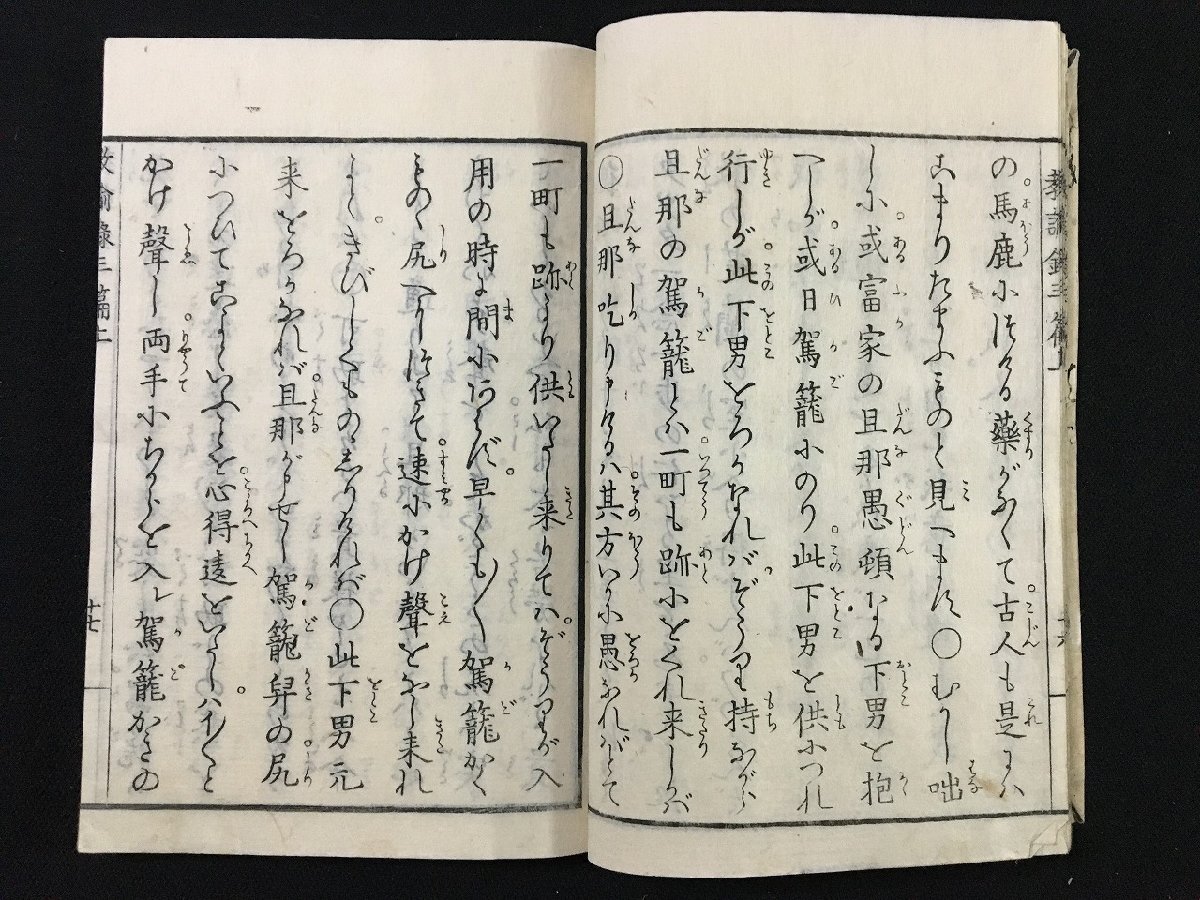 の馬鹿につける薬がなくて古人も是には
こまりたまふものと見へます〇むかし咄
しに或富家の旦那愚頓なる下男を抱
へしが或日駕籠にのり此下男を供につれ
行しが此下男をろかなればぞうり持ながら
旦那の駕籠とは一町も跡にをくれ来しかば
〇旦那叱り申けるハ其方いかに愚なればとて
一町も跡より供いたし来りてハぞうりが入
用の時に間にあはず早くもく駕籠かく
ものゝ尻へ付そて速にかけ聲をなし来れ
よときびしくものゝしりければ〇此下男元
来をろかなれば旦那がせし駕籠舁の尻
につひてこよといふことを心得違をいたしハイ〳〵と
かけ聲し両手にちからを入レ駕籠かきの
教諭録三篇上
十七